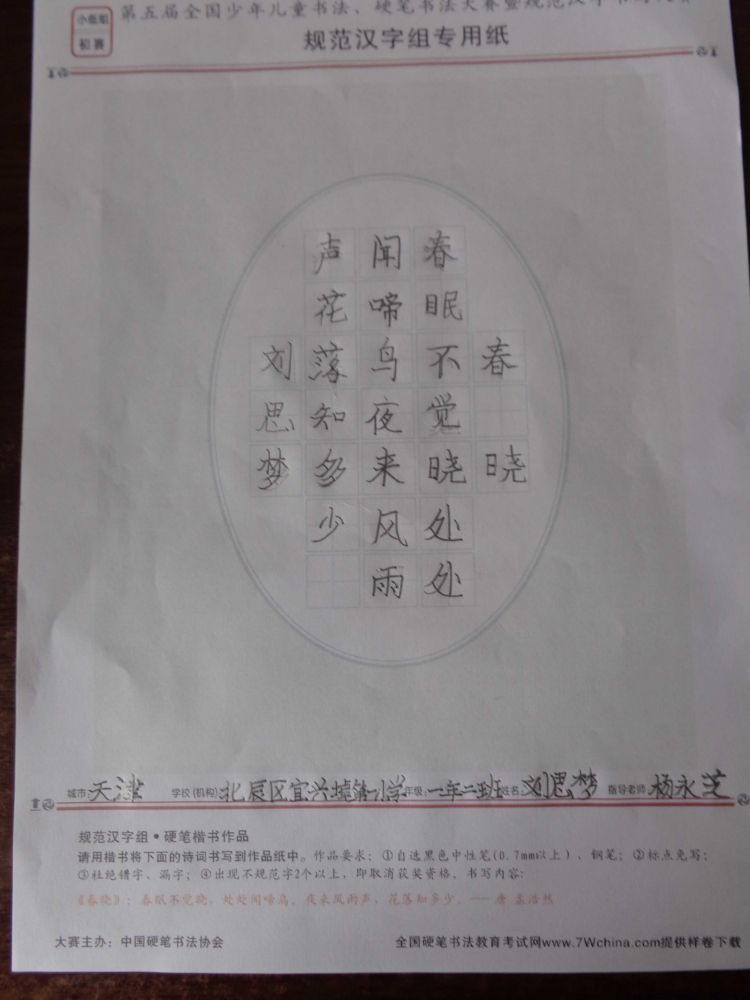 小低组
初赛
第五届全国少年儿童书法、硬笔书法大赛暨规范汉字书写大赛
规范汉字组专用纸
春晓
春眠不觉晓处处
闻啼鸟夜来风雨
声花落知多少
刘思梦
城市 天津 学校(机构) 北辰区宜兴埠第一小学 年级 一年二班 姓名 刘思梦 指导老师 杨永芝
规范汉字组•硬笔楷书作品
请用楷书将下面的诗词书写到作品纸中。作品要求：①自选黑色中性笔(0.7mm以上)、钢笔；②标点免写；
③杜绝错字、漏字；④出现不规范字2个以上，即取消获奖资格。书写内容：
《春晓》：春眠不觉晓，处处闻啼鸟。夜来风雨声，花落知多少。——唐 孟浩然
大赛主办：中国硬笔书法协会
全国硬笔书法教育考试网www.7Wchina.com提供样卷下载